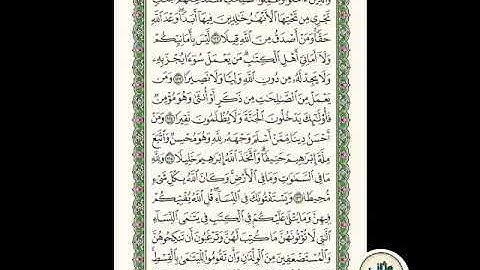 وَٱلَّذِينَ ءَامَنُوا۟ وَعَمِلُوا۟ ٱلصَّـٰلِحَـٰتِ سَنُدْخِلُهُمْ جَنَّـٰتٍ
تَجْرِى مِن تَحْتِهَا ٱلْأَنْهَـٰرُ خَـٰلِدِينَ فِيهَآ أَبَدًا ۖ وَعْدَ ٱللَّهِ
حَقًّا ۚ وَمَنْ أَصْدَقُ مِنَ ٱللَّهِ قِيلًا ١٢٢ لَّيْسَ بِأَمَانِيِّكُمْ
وَلَآ أَمَانِىِّ أَهْلِ ٱلْكِتَـٰبِ ۗ مَن يَعْمَلْ سُوٓءًا يُجْزَ بِهِۦ
وَلَا يَجِدْ لَهُۥ مِن دُونِ ٱللَّهِ وَلِيًّا وَلَا نَصِيرًا ١٢٣ وَمَن
يَعْمَلْ مِنَ ٱلصَّـٰلِحَـٰتِ مِن ذَكَرٍ أَوْ أُنثَىٰ وَهُوَ مُؤْمِنٌ
فَأُو۟لَـٰٓئِكَ يَدْخُلُونَ ٱلْجَنَّةَ وَلَا يُظْلَمُونَ نَقِيرًا ١٢٤ وَمَنْ
أَحْسَنُ دِينًا مِّمَّنْ أَسْلَمَ وَجْهَهُۥ لِلَّهِ وَهُوَ مُحْسِنٌ وَٱتَّبَعَ
مِلَّةَ إِبْرَٰهِيمَ حَنِيفًا ۗ وَٱتَّخَذَ ٱللَّهُ إِبْرَٰهِيمَ خَلِيلًا ١٢٥ وَلِلَّهِ
مَا فِى ٱلسَّمَـٰوَٰتِ وَمَا فِى ٱلْأَرْضِ ۚ وَكَانَ ٱللَّهُ بِكُلِّ شَىْءٍ
مُّحِيطًا ١٢٦ وَيَسْتَفْتُونَكَ فِى ٱلنِّسَآءِ ۖ قُلِ ٱللَّهُ يُفْتِيكُمْ
فِيهِنَّ وَمَا يُتْلَىٰ عَلَيْكُمْ فِى ٱلْكِتَـٰبِ فِى يَتَـٰمَى ٱلنِّسَآءِ
ٱلَّـٰتِى لَا تُؤْتُونَهُنَّ مَا كُتِبَ لَهُنَّ وَتَرْغَبُونَ أَن تَنكِحُوهُنَّ
وَٱلْمُسْتَضْعَفِينَ مِنَ ٱلْوِلْدَٰنِ وَأَن تَقُومُوا۟ لِلْيَتَـٰمَىٰ بِٱلْقِسْطِ ۚ